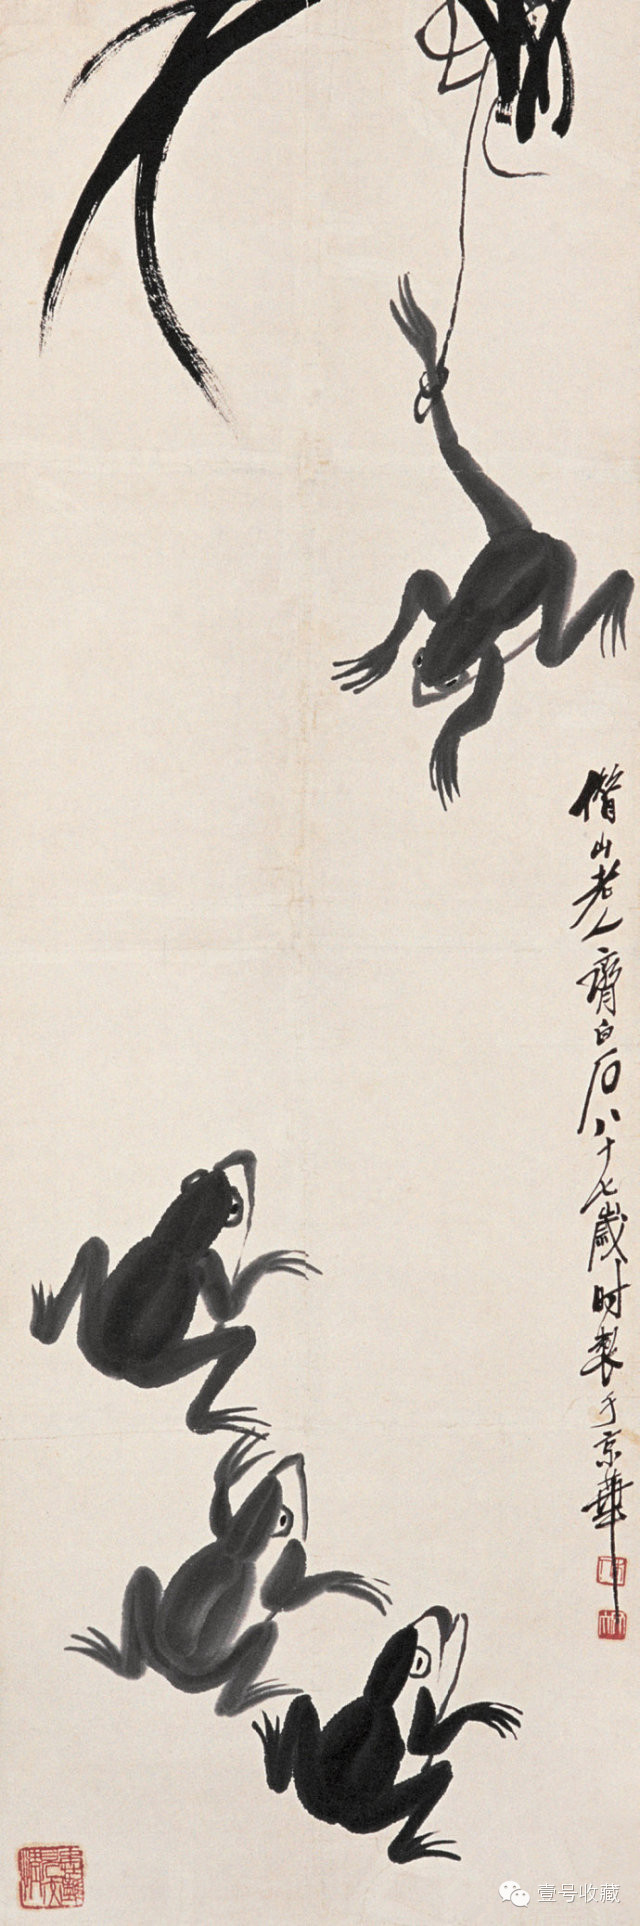 借山老人齊白石八十七歲时製于京華
壹号收藏